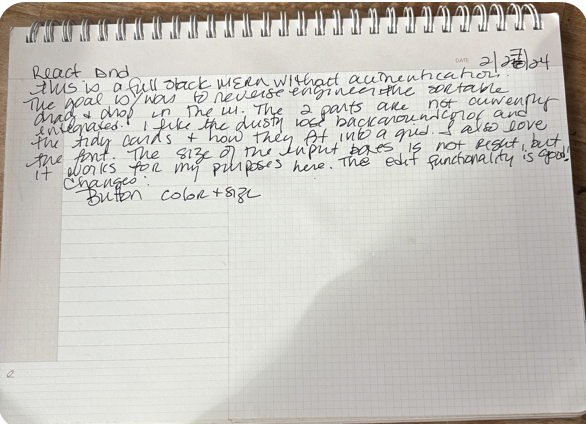 DATE 2/27/24
React Dnd
This is a full stack MERN without authentication.
The goal is/was to reverse engineer the sortable
drag + drop in the UI. The 2 parts are not currently
integrated. I like the dusty rose background color and
the tidy cards + how they fit into a grid. I also love
the font. The size of the input boxes is not right, but
it works for my purposes here. The edit functionality is good!
Changes:
Button color + size